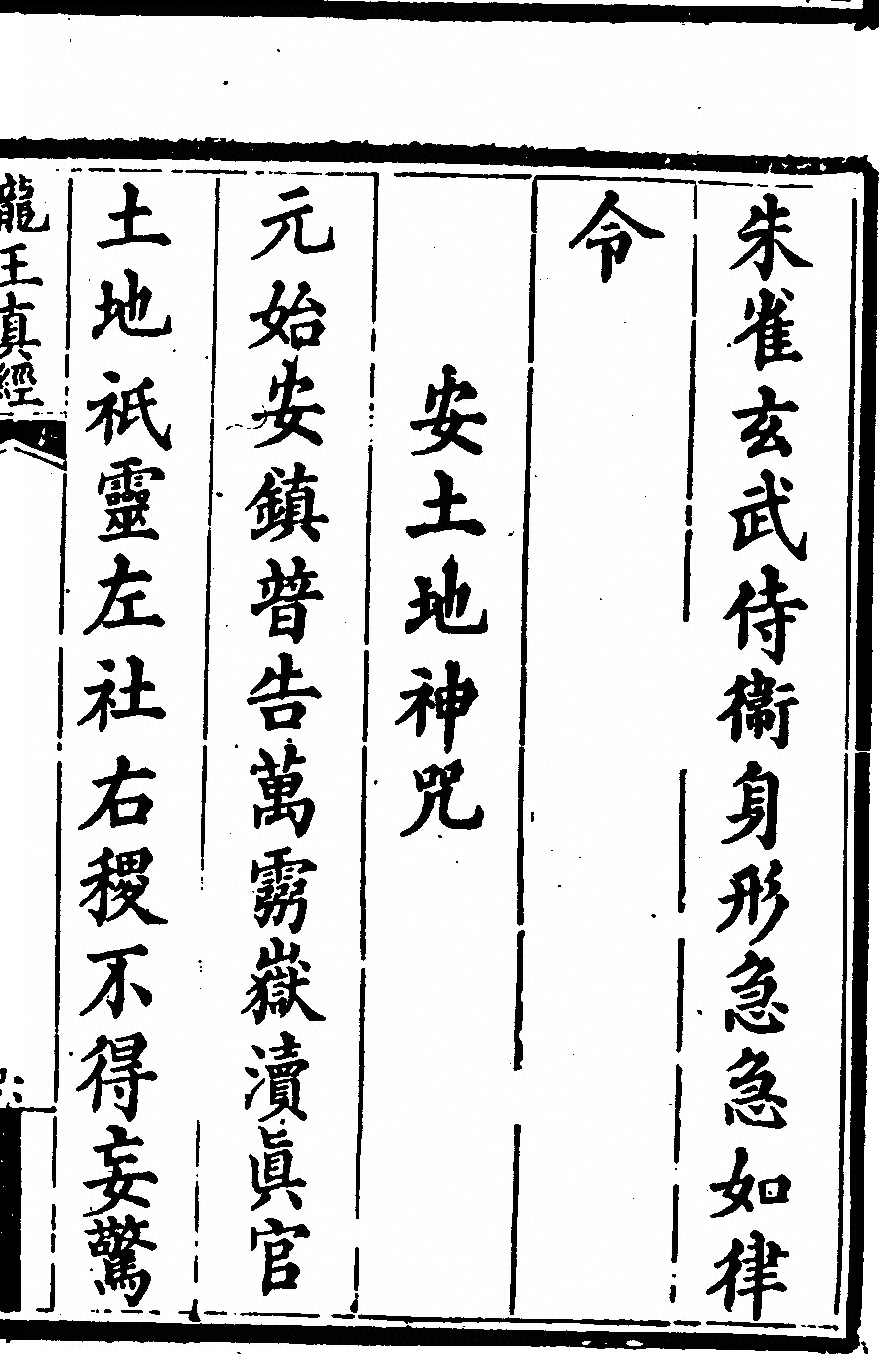 朱雀玄武侍衞身形急急如律
令
安土地神咒
元始安鎮普告萬靈嶽瀆眞官
土地祇靈左社右稷不得妄驚
龍王真經